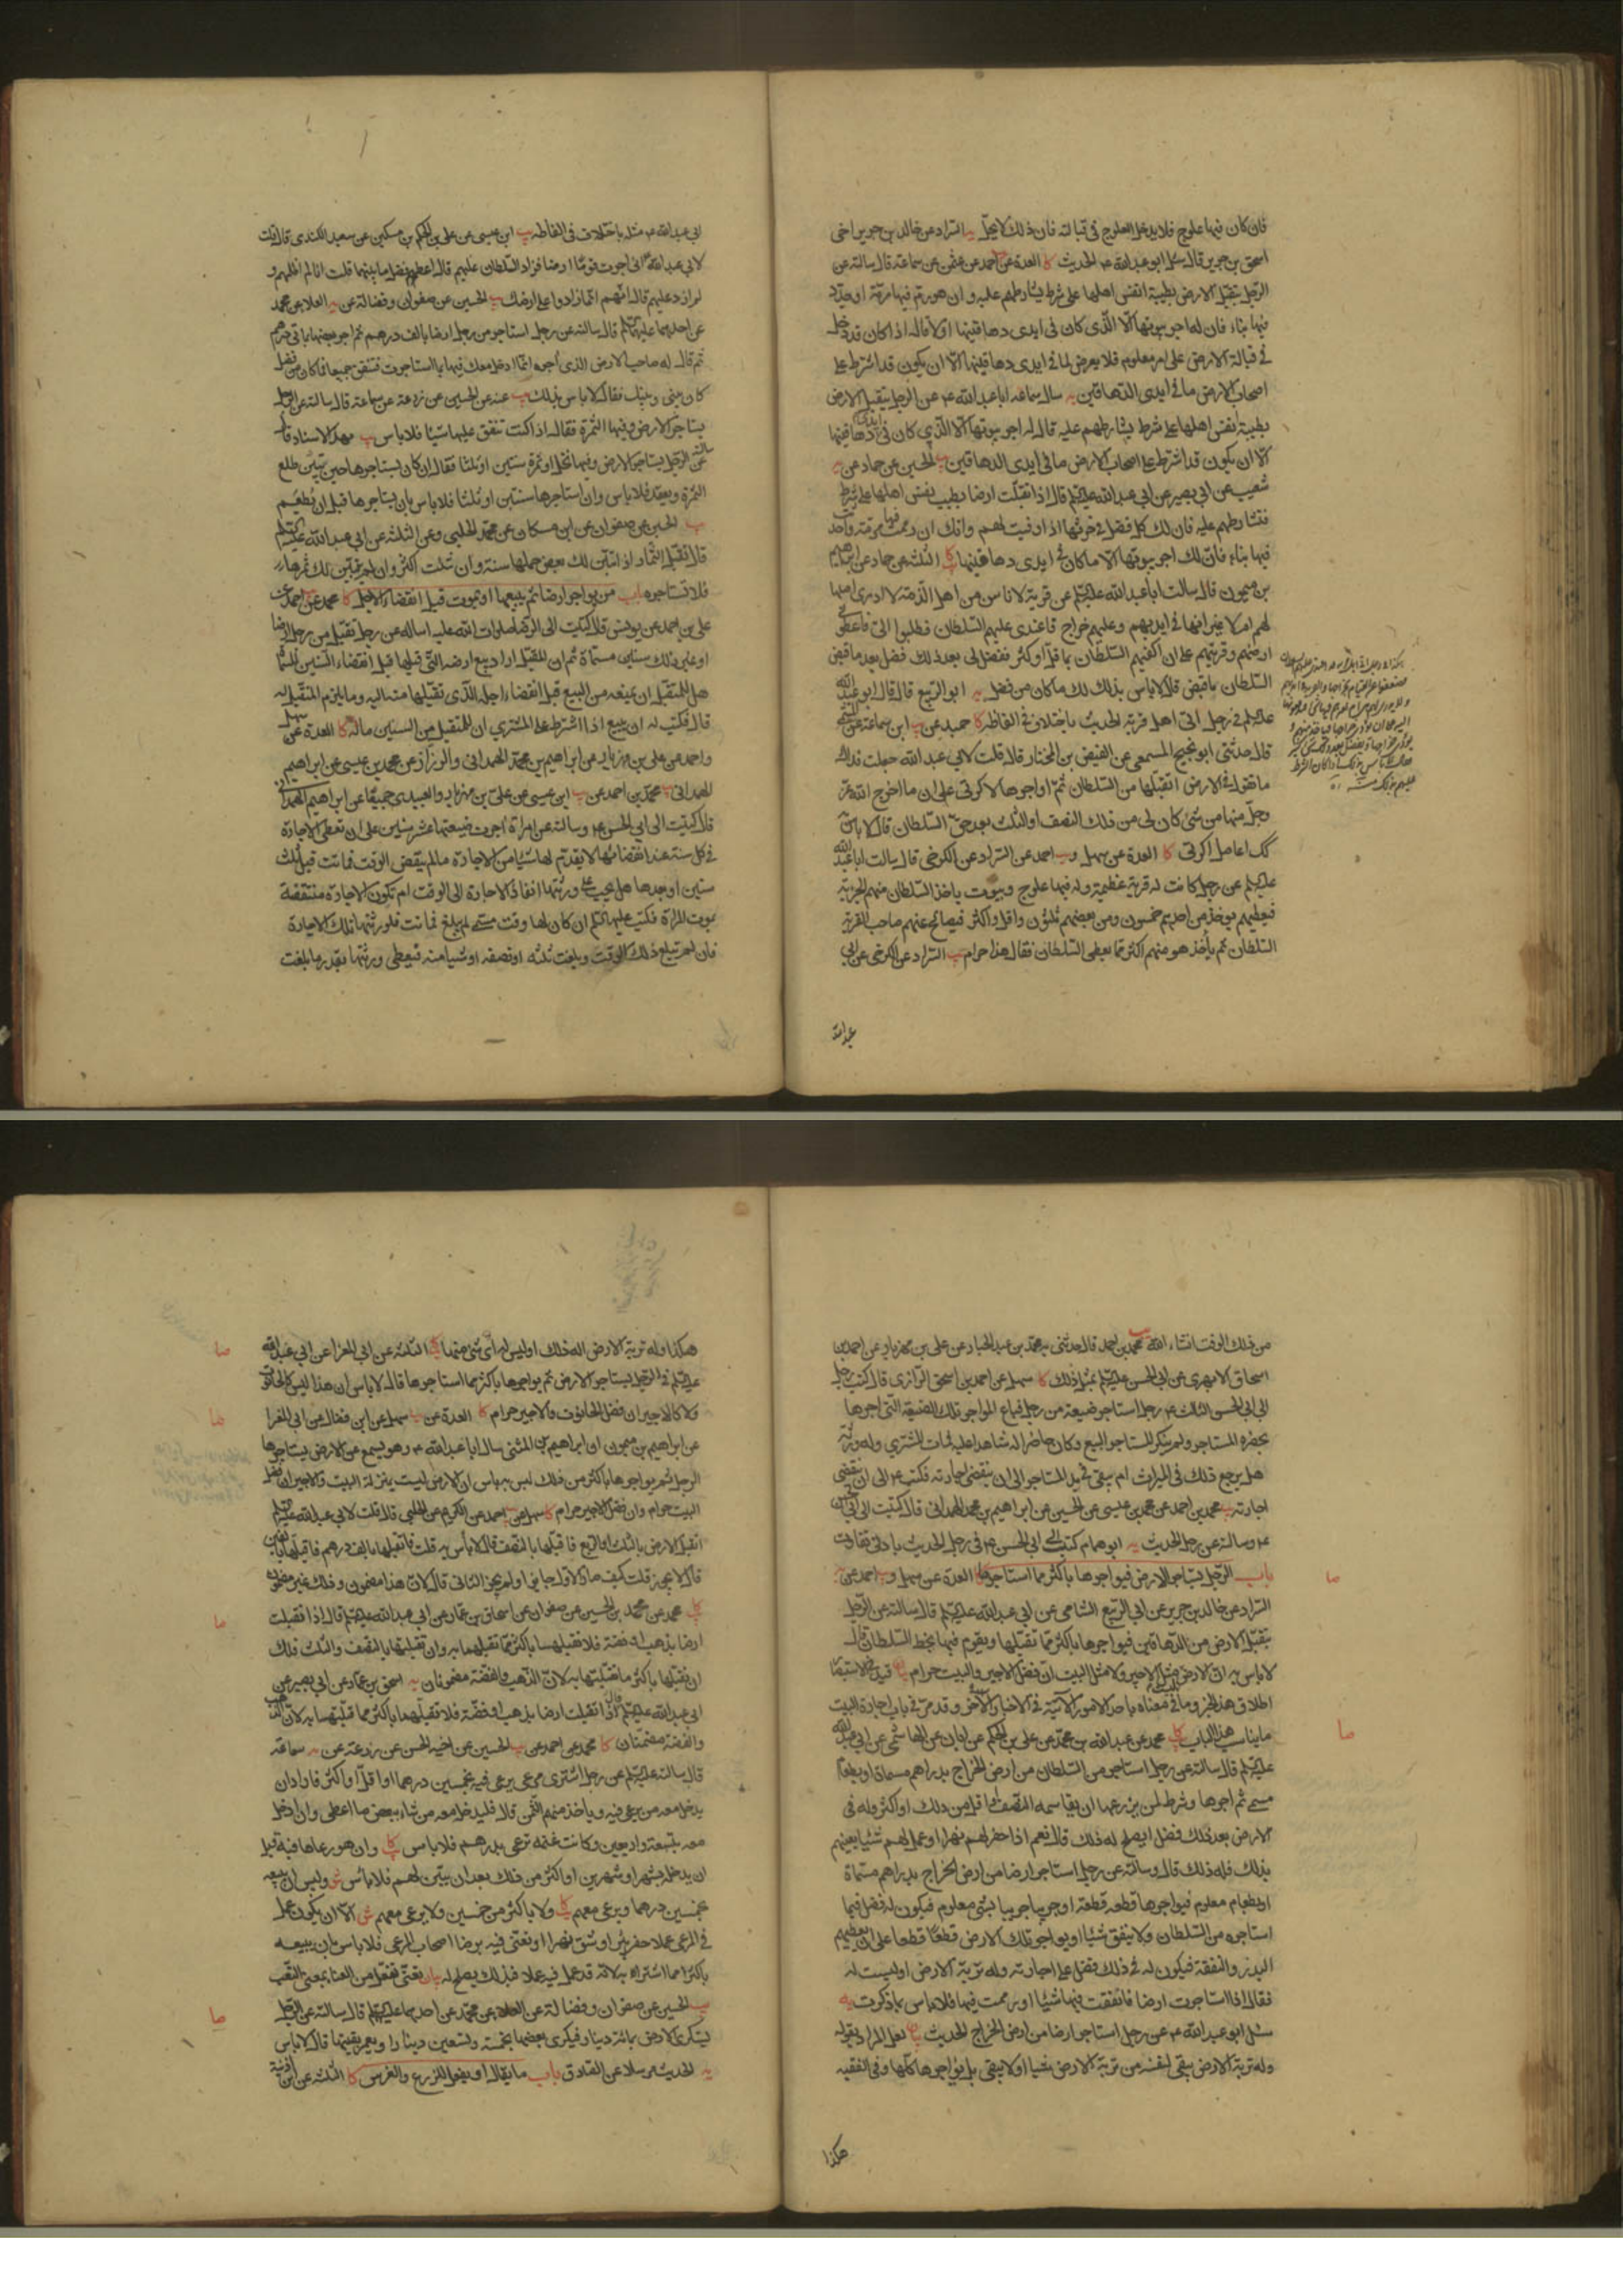 فان كان فيها علوج فلا يدخل العلوج فى قبالته فان ذلك لا يحل يه السراد عن خالد بن جرير اخى
اسحق بن جرير قال سئل ابو عبد الله ع الحديث كا العدة عن احمد عن عثمن عن سماعة قال سالته عن
الرجل يتقبل الارض بطيبة انفس اهلها على شرط يشارطهم عليه وان هو رم فيها مرمة او جدد
فيها بناء فان له اجر بيوتها الا الذى كان فى ايدى دهاقينها اولا قال اذا كان قد دخل
فى قبالة الارض على امر معلوم فلا يعرض لما فى ايدى دهاقينها الا ان يكون قد اشترط على
اصحاب الارض ما فى ايدى الدهاقين يه سال سماعة ابا عبد الله ع عن الرجل يتقبل الارض
بطيبة نفس اهلها على شرط يشارطهم عليه قال له اجر بيوتها الا الذى كان فى ايدى دهاقينها
الا ان يكون قد اشترط على اصحاب الارض ما فى ايدى الدهاقين يب الحسين عن حماد عن
شعيب عن ابى بصير عن ابى عبد الله عليه السلم قال اذا تقبلت ارضا بطيب نفس اهلها على شرط
فتشارطهم عليه فان لك كل فضل فى حرثها اذا وفيت لهم وانك ان رممت فيها مرمة واحدثت
فيها بناء فان لك اجر بيوتها الا ما كان فى ايدى دهاقينها كا الثلثة عن حماد عن ابرهيم
بن ميمون قال سالت ابا عبد الله عليه السلم عن قرية لاناس من اهل الذمة لا ادرى اصلها
لهم ام لا غير انها فى ايديهم وعليهم خراج فاعتدى عليهم السلطان فطلبوا الى فاعطونى
ارضهم وقريتهم على ان اكفيهم السلطان بما قل او كثر ففضل لى بعد ذلك فضل بعد ما قبض
السلطان ما قبض قال لا باس بذلك لك ما كان من فضل يه ابو الربيع قال قال ابو عبد الله
عليه السلم فى رجل اتى اهل قرية الحديث باختلاف فى الفاظه كا حميد عن يب ابن سماعة عن
قال حدثنى ابو نجيح المسمعى عن الفيض بن المختار قال قلت لابى عبد الله جعلت فداك
ما تقول فى الارض اتقبلها من السلطان ثم اواجرها لاكرتى على ان ما اخرج الله عز
وجل منها من شئ كان لى من ذلك النصف او الثلث بعد حق السلطان قال لا باس
كذلك اعامل اكرتى كا العدة عن سهل و يب احمد عن السراد عن الكرخى قال سالت ابا عبد الله
عليه السلم عن رجل كانت له قرية عظيمة وله فيها علوج وبيوت ياخذ السلطان منهم الجزية
فيعطيهم يوخذ من احدهم خمسون ومن بعضهم ثلثون واقل واكثر فيصالح عنهم صاحب القرية
السلطان ثم يأخذ هو منهم اكثر مما يعطى السلطان فقال هذا حرام يب السراد عن الكرخى عن ابى
عبد الله
ابى عبد الله ع مثله باختلاف فى الفاظه يب ابن عيسى عن على بن الحكم بن مسكين عن سعيد الكندى قال قلت
لابى عبد الله ع انى اجرت قوما ارضا فزاد السلطان عليهم قال اعطهم فضل ما بينهما قلت انا لم اظلمهم و
لم ازد عليهم قال انهم انما زادوا على ارضك يب الحسين عن صفوان وفضالة عن يه العلا عن محمد
عن احدهما عليهما السلم قال سالته عن رجل استاجر من رجل ارضا بالف درهم ثم اجر بعضها بمائتى درهم
ثم قال له صاحب الارض الذى آجره انا ادخل معك فيها بما استاجرت فننفق جميعا فما كان من فضل
كان بينى وبينك فقال لا باس بذلك يب عنه عن الحسين عن زرعة عن سماعة قال سالته عن الرجل
يستاجر الارض وفيها الثمرة فقال اذا كنت تنفق عليها شيئا فلا باس يب بهذا الاسناد قال
سالته عن الرجل يستاجر الارض وفيها نخل او ثمرة سنتين او ثلثا فقال ان كان يستاجرها حين يتبين طلع
الثمرة ويعقد فلا باس وان استاجرها سنتين او ثلثا فلا باس بان يستاجرها قبل ان تطعم
يب الحسين عن صفوان عن ابن مسكان عن محمد الحلبى وعن الثلثة عن ابى عبد الله عليه السلم
قال تقبل الثمار اذا تبين لك بعض حملها سنة وان شئت اكثر وان لم يتبين لك ثمرها
فلا تستاجره باب من يواجر ارضا ثم يبيعها او يموت قبل انقضاء الاجل كا محمد عن احمد عن
على بن احمد عن يونس قال كتبت الى الرضا صلوات الله عليه اساله عن رجل تقبل من رجل ارضا
او غير ذلك سنين مسماة ثم ان المقبل اراد بيع ارضه التى قبلها قبل انقضاء السنين المسماة
هل للمتقبل ان يمنعه من البيع قبل انقضاء اجله الذى تقبلها منه اليه وما يلزم المتقبل له
قال فكتب له ان يبيع اذا اشترط على المشترى ان للمتقبل من السنين ما له كا العدة عن سهل
واحمد عن على بن مهزيار عن ابراهيم بن محمد الهمدانى والرزاز عن محمد بن عيسى عن ابراهيم
الهمدانى يب محمد بن احمد عن يب ابن عيسى عن على بن مهزيار والعبيدى جميعا عن ابراهيم الهمدانى
قال كتبت الى ابى الحسن ع وسالته عن امراة اجرت ضيعتها عشر سنين على ان تعطى الاجارة
فى كل سنة عند انقضائها لا يقدم لها شيئا من الاجارة ما لم ينقض الوقت فماتت قبل ثلث
سنين او بعدها هل يجب على ورثتها انفاذ الاجارة الى الوقت ام تكون الاجارة منتقضة
بموت المراة فكتب عليه السلم ان كان لها وقت مسمى لم يبلغ فماتت فلورثتها تلك الاجارة
فان لم تبلغ ذلك الوقت وبلغت ثلثه او نصفه او شيئا منه فيعطى ورثتها بقدر ما بلغت
من ذلك الوقت انشاء الله يب محمد بن احمد قال حدثنى محمد بن عبد الجبار عن على بن مهزيار عن احمد بن
اسحاق الابهرى عن ابى الحسن عليه السلم بمثل ذلك كا سهل عن احمد بن اسحق الرازى قال كتب رجل
الى ابى الحسن الثالث ع رجل استاجر ضيعة من رجل فباع المواجر تلك الضيعة التى اجرها
بحضرة المستاجر ولم ينكر المستاجر البيع وكان حاضرا له شاهدا عليه فمات المشترى وله ورثة
هل يرجع ذلك فى الميراث ام يبقى فى يد المستاجر الى ان ينقضى اجارته فكتب ع الى ان ينقضى
اجارته يب محمد بن احمد عن محمد بن عيسى عن الحسين عن ابراهيم بن محمد الهمدانى قال كتبت الى ابى الحسن
ع وسالته عن رجل الحديث يه ابو همام كتب الى ابى الحسن ع فى رجل الحديث بادنى تفاوت
باب الرجل يستاجر الارض فيواجرها باكثر مما استاجرها كا العدة عن سهل و يب احمد عن
السراد عن خالد بن جرير عن ابى الربيع الشامى عن ابى عبد الله عليه السلم قال سالته عن الرجل
يتقبل الارض من الدهاقين فيواجرها باكثر مما تقبلها ويقوم فيها بحظ السلطان قال
لا باس به ان الارض ليس مثل الاجير ولا مثل البيت ان فضل الاجير والبيت حرام
اطلاق هذا الخبر وما فى معناه باحد الامور الاتية فى الاخبار الاخر وقد مر فى باب اجارة البيت
ما يناسب هذا الباب كا محمد عن عبد الله بن محمد عن على بن الحكم عن ابان عن الهاشمى عن ابى عبد الله
عليه السلم قال سالته عن رجل استاجر من السلطان من ارض الخراج بدراهم مسماة او بطعام
مسمى ثم اجرها وشرط لمن يزرعها ان يقاسمه النصف او اقل من ذلك او اكثر وله فى
الارض بعد ذلك فضل ايصلح له ذلك قال نعم اذا حفر لهم نهرا او عمل لهم شيئا يعينهم
بذلك فله ذلك قال وسالته عن رجل استاجر ارضا من ارض الخراج بدراهم مسماة
او بطعام معلوم فيواجرها قطعة قطعة او جريبا جريبا بشئ معلوم فيكون له فضل فيما
استاجره من السلطان ولا ينفق شيئا او يواجر تلك الارض قطعا قطعا على ان يعطيهم
البذر والنفقة فيكون له فى ذلك فضل على اجارته وله تربة الارض او ليست له
فقال اذا استاجرت ارضا فانفقت فيها شيئا او رممت فيها فلا باس بما ذكرت يه
سئل ابو عبد الله ع عن رجل استاجر ارضا من ارض الخراج الحديث بيان لعل المراد بقوله
وله تربة الارض يبقى لنفسه من تربة الارض شيئا او لا يبقى بل يواجرها كلها وفى الفقيه
هكذا
هكذا وله تربة الارض اله ذلك او ليس له اى شئ منها كا الثلثة عن ابى المغرا عن ابى عبد الله
عليه السلم فى الرجل يستاجر الارض ثم يواجرها باكثر مما استاجرها قال لا باس ان هذا ليس كالحانوت
ولا كالاجير ان فضل الحانوت والاجير حرام كا العدة عن يب سهل عن ابن فضال عن ابى المغرا
عن ابراهيم بن ميمون ان ابراهيم بن المثنى سال ابا عبد الله ع وهو يسمع عن الارض يستاجرها
الرجل ثم يواجرها باكثر من ذلك ليس به باس ان الارض ليست بمنزلة البيت والاجير ان فضل
البيت حرام وان فضل الاجير حرام كا سهل عن يب احمد عن عبد الكريم عن الحلبى قال قلت لابى عبد الله عليه السلم
اتقبل الارض بالثلث او الربع فاقبلها بالنصف قال لا بأس به قلت فاتقبلها بالف درهم فاقبلها بالفين
قال لا يجوز قلت كيف جاز الاول ولم يجز الثانى قال لان هذا مضمون وذلك غير مضمون
كا محمد عن محمد بن الحسين عن صفوان عن اسحاق بن عمار عن ابى عبد الله عليه السلم قال اذا تقبلت
ارضا بذهب او فضة فلا تقبلها باكثر مما تقبلتها به وان تقبلتها بالنصف والثلث فلك
ان تقبلها باكثر مما تقبلتها به لان الذهب والفضة مضمونان يه اسحق بن عمار عن ابى بصير عن
ابى عبد الله عليه السلم قال اذا تقبلت ارضا بذهب او فضة فلا تقبلها باكثر مما قبلتها به لان الذهب
والفضة مضمنان كا محمد عن احمد عن يب الحسين عن اخيه الحسن عن زرعة عن يه سماعة
قال سالته عليه السلم عن رجل اشترى مرعى يرعى فيه بخمسين درهما او اقل او اكثر فاراد ان
يدخل معه من يرعى فيه وياخذ منهم الثمن قال فليدخل معه من شاء ببعض ما اعطى وان ادخل
معه بتسعة واربعين وكانت غنمه ترعى بدرهم فلا باس كا وان هو رعاها فيه قبل
ان يدخله بشهر او شهرين او اكثر من ذلك بعد ان يبين لهم فلا باس ش وليس له ان يبيعه
بخمسين درهما ويرعى معهم كا ولا باكثر من خمسين ولا يرعى معهم ش الا ان يكون عمل
فى المرعى عملا حفر بئرا او شق نهرا او تعنى فيه برضا اصحاب المرعى فلا باس بان يبيعه
باكثر مما اشتراه به لانه قد عمل فيه عملا فبذلك يصلح له بيان تعنى تفعل من العنا بمعنى التعب
يب الحسين عن صفوان وفضالة عن العلا عن محمد عن احدهما عليهما السلم قال سالته عن الرجل
يستكرى الارض بمائة دينار فيكرى بعضها بخمسة وتسعين دينارا ويعمر بقيتها قال لا باس
يه الحديث مرسلا عن الصادق باب ما يقال او يفعل للزرع والغرس كا الثلثة عن ابن اذينة